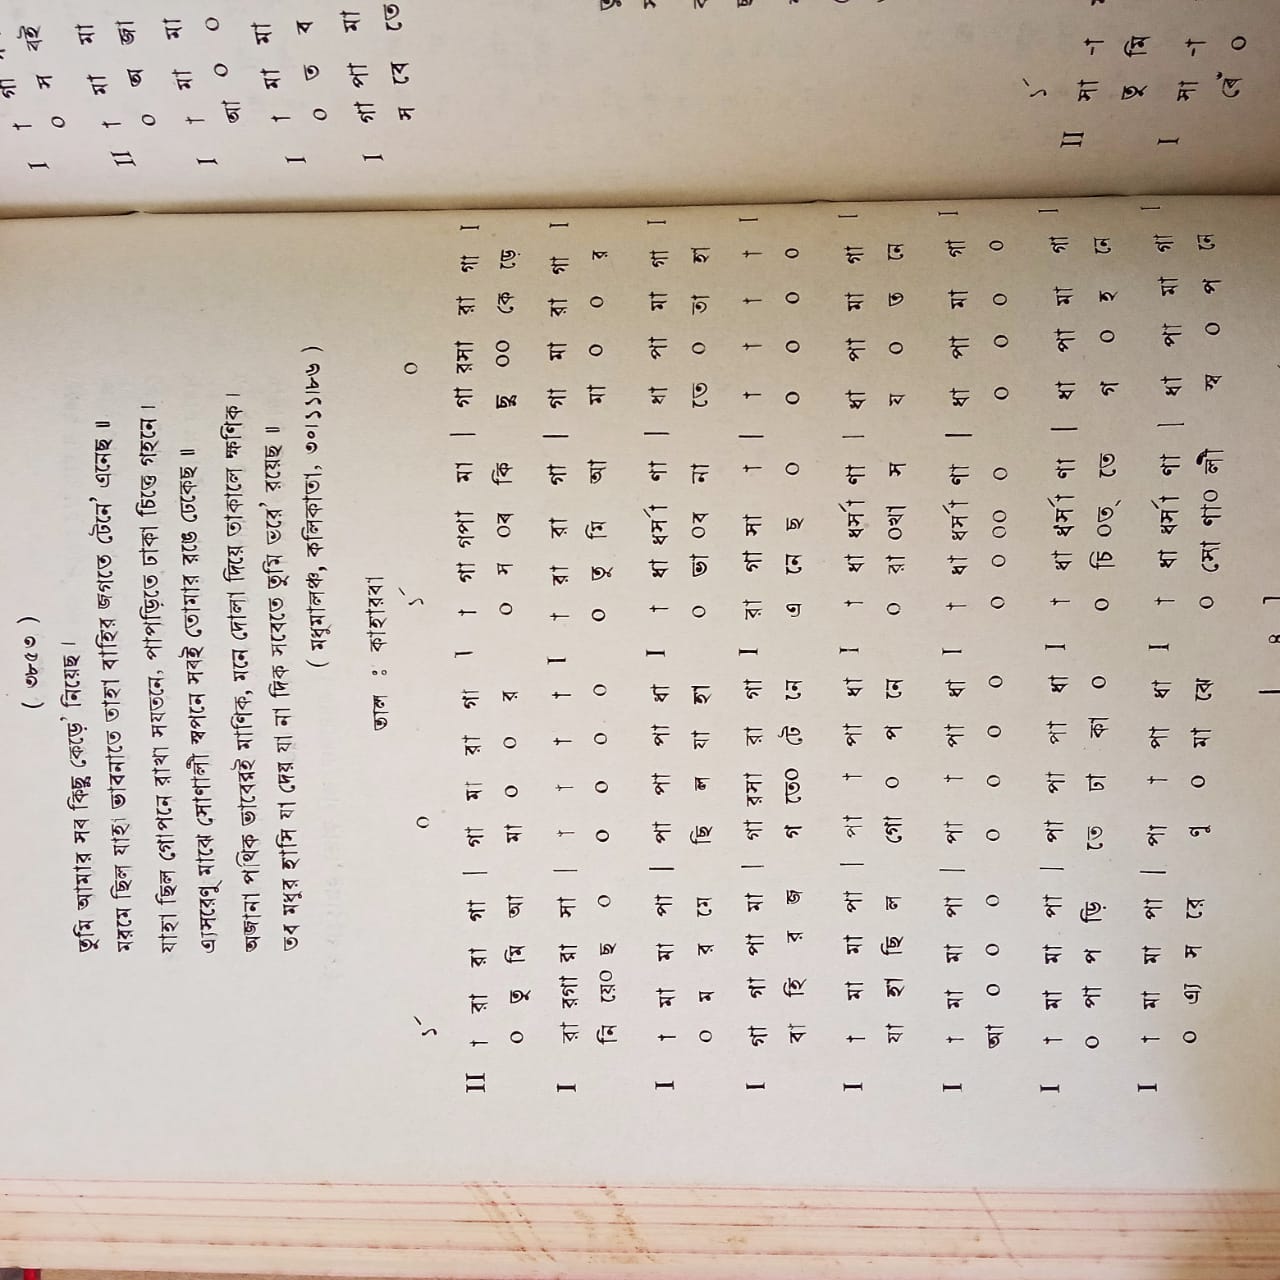 ( ৩৮৫৩ )
তুমি আমার সব কিছু কেড়ে' নিয়েছ ।
মরমে ছিল যাহা ভাবনাতে তাহা বাহির জগতে টেনে' এনেছ ॥
যাহা ছিল গোপনে রাখা সযতনে, পাপড়িতে ঢাকা চিত্তে গহনে ।
এসেরেণু মাঝে সোণালী স্বপনে সবই তোমার রঙে ঢেকেছ ॥
অজানা পথিক ভাবেরই মাণিক, মনে দোলা দিয়ে তাকালে ক্ষণিক ।
তব মধুর হাসি যা দেয় যা না দিক সবেতে তুমি ভরে' রয়েছ ॥
( মধুমালঞ্চ, কলিকাতা, ৩০।১১।৮৬ )
তাল : কাহারবা
১´ ০ ১´ ০
II † রা রা গা | গা মা রা গা I † গা গপা মা | গা রমা রা গা I
০ তু মি আ মা ০ ০ র ০ স ০ব কি ছু ০০ কে ড়ে
I রা রগা রা সা | † † † † I † রা রা গা | গা মা রা গা I
নি য়ে০ ছ ০ ০ ০ ০ ০ ০ তু মি আ মা ০ ০ র
I † মা মা পা | পা পা পা ধা I † ধা ধর্সা ণা | ধা পা মা গা I
০ ম র মে ছি ল যা হা ০ ভা ০ব না তে ০ তা হা
I গা গা পা মা | গা রমা রা গা I রা গা সা † | † † † † I
বা হি র জ গ তে০ টে নে এ নে ছ ০ ০ ০ ০ ০
I † মা মা পা | পা † পা ধা I † ধা ধর্সা ণা | ধা পা মা গা I
যা হা ছি ল গো ০ প নে ০ রা ০খা স য ০ ত নে
I † মা মা পা | পা † পা ধা I † ধা ধর্সা ণা | ধা পা মা গা I
আ ০ ০ ০ ০ ০ ০ ০ ০ ০ ০০ ০ ০ ০ ০ ০
I † মা মা পা | পা পা পা ধা I † ধা ধর্সা ণা | ধা পা মা গা I
০ পা প ড়ি তে ঢা কা ০ ০ চি ০ত্ তে গ ০ হ নে
I † মা মা পা | পা † পা ধা I † ধা ধর্সা ণা | ধা পা মা গা I
০ এ্য স রে ণু ০ মা ঝে ০ সো ণা০ লী স্ব ০ প নে
I †
০ স বই
II † মা মা
০ অ জা
I † মা মা
আ ০ ০
I † মা মা
০ ত ব
I গা পা মা
স বে তে
১´
II সা -া
তু মি
I সা -া
বেঁ ০